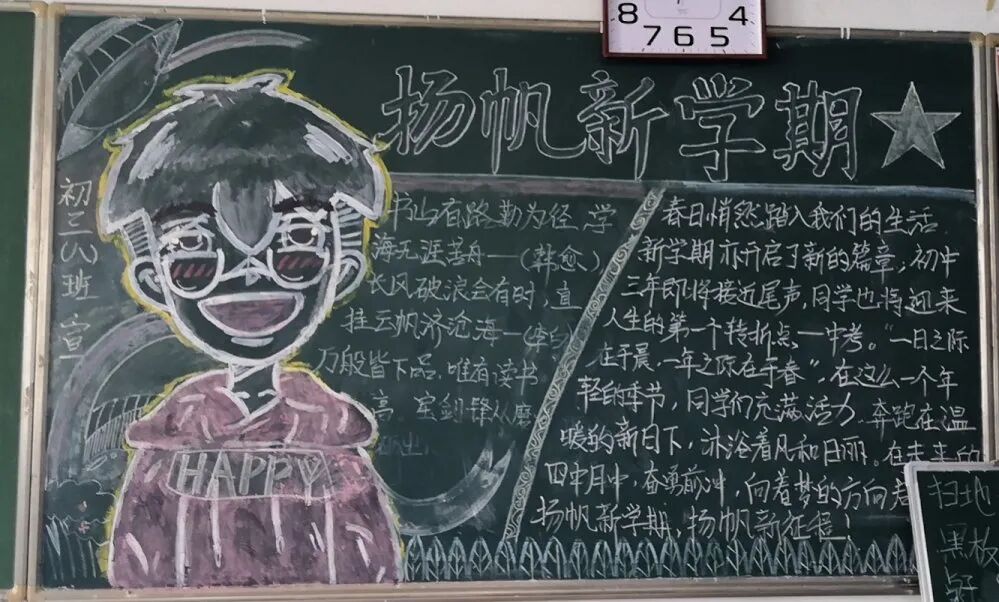 8 7 6 5 4
扬帆新学期
初三(八)班 宣
书山有路勤为径,学
海无涯苦舟——(韩愈)
长风破浪会有时,直
挂云帆济沧海—(李白)
万般皆下品,唯有读书
高 宝剑锋从磨
砺出
春日悄然踏入我们的生活,
新学期亦开启了新的篇章,初中
三年即将接近尾声,同学也将迎来
人生的第一个转折点—中考。"一日之际
在于晨,一年之际在于春",在这么一个年
轻的季节,同学们充满活力 奔跑在温
暖的新日下,沐浴着风和日丽。在未来的
四个月中,奋勇前冲,向着梦的方向
扬帆新学期,扬帆新征程!
HAPPY
扫地
黑板